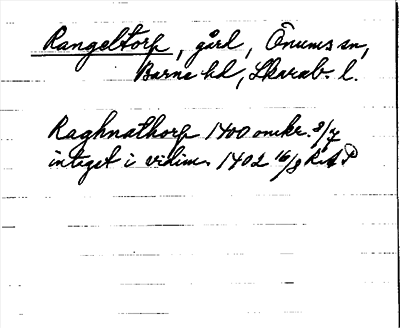 Rangeltorp, gård, Önums sn,
Barne hd, Skarab. l.
Raghnathorp 1400 omkr. 2/7
intaget i vidim. 1402 16/8 RAP